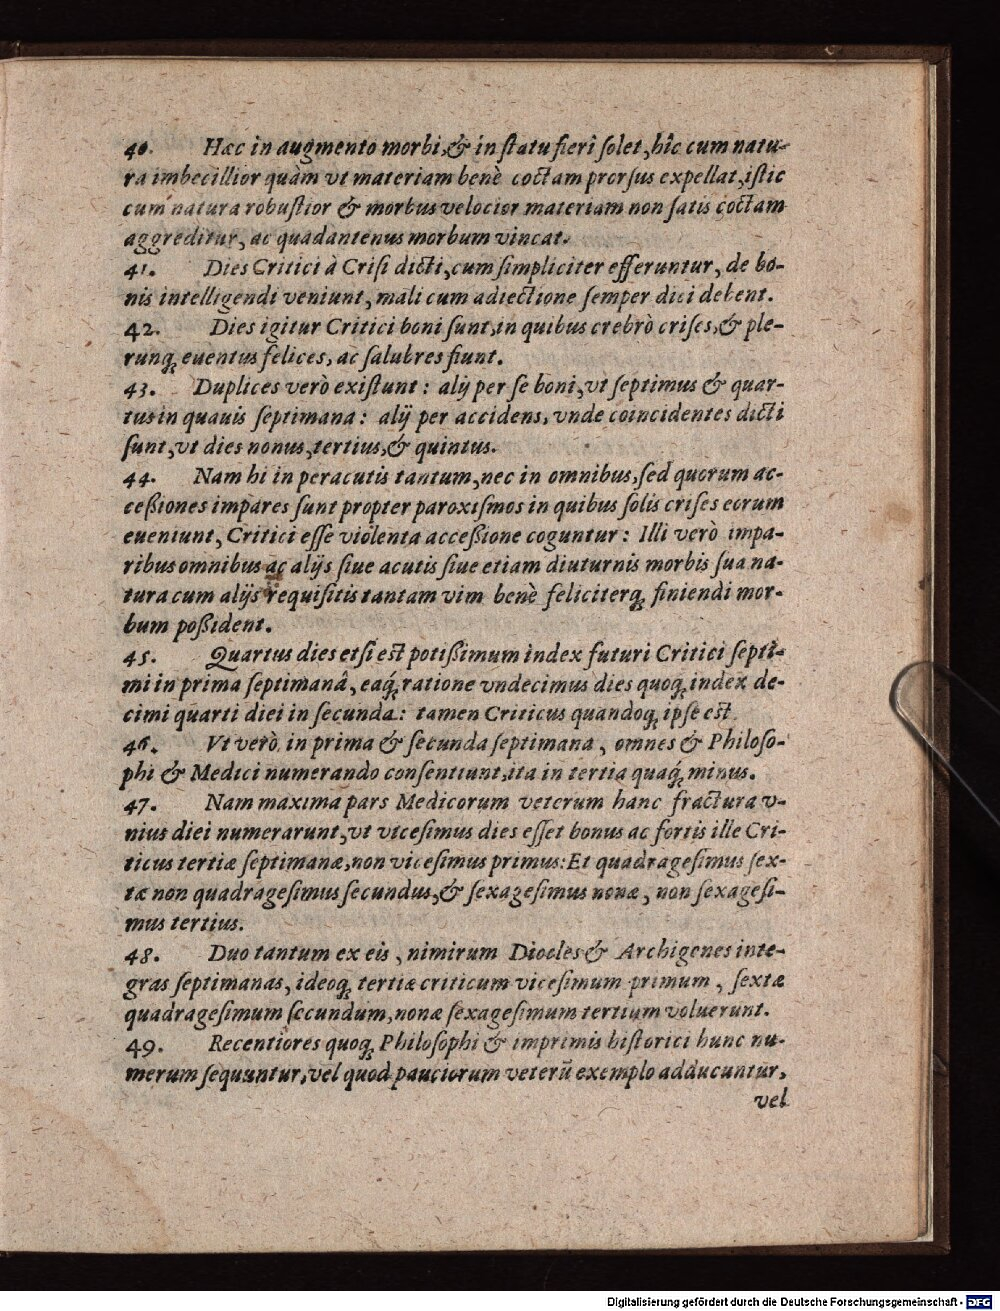 40. Hæc in augmento morbi,& in ſtatu fieri ſolet, hîc cum natu-
ra imbecillior quàm vt materiam benè coctam prorſus expellat, iſtic
cum natura robuſtior & morbus velocior materiam non ſatis coctam
aggreditur, ac quadantenus morbum vincat.
41. Dies Critici à Criſi dicti, cum ſimpliciter efferuntur, de bo-
nis intelligendi veniunt, mali cum adiectione ſemper dici debent.
42. Dies igitur Critici boni ſunt, in quibus crebrò criſes,& ple-
runq; euentus felices, ac ſalubres fiunt.
43. Duplices verò exiſtunt: alij per ſe boni, vt ſeptimus & quar-
tus in quauis ſeptimana: alij per accidens, vnde coincidentes dicti
ſunt, vt dies nonus, tertius,& quintus.
44. Nam hi in peracutis tantum, nec in omnibus, ſed quorum ac-
ceßiones impares ſunt propter paroxiſmos in quibus ſolis criſes eorum
eueniunt, Critici eſſe violenta acceßione coguntur: Illi verò impa-
ribus omnibus ac alijs ſiue acutis ſiue etiam diuturnis morbis ſua na-
tura cum alijs requiſitis tantam vim benè feliciterq; finiendi mor-
bum poßident.
45. Quartus dies etſi eſt potißimum index futuri Critici ſepti-
mi in prima ſeptimanâ, eaq́; ratione vndecimus dies quoq; index de-
cimi quarti diei in ſecunda: tamen Criticus quandoq; ipſe eſt.
46. Vt verò in prima & ſecunda ſeptimana, omnes & Philoſo-
phi & Medici numerando conſentiunt, ita in tertia quaq́; minus.
47. Nam maxima pars Medicorum veterum hanc fractura v-
nius diei numerarunt, vt viceſimus dies eſſet bonus ac fortis ille Cri-
ticus tertiæ ſeptimanæ, non viceſimus primus: Et quadrageſimus ſex-
tæ non quadrageſimus ſecundus,& ſexageſimus nonæ, non ſexageſi-
mus tertius.
48. Duo tantum ex eis, nimirum Diocles & Archigenes inte-
gras ſeptimanas, ideoq; tertiæ criticum viceſimum primum, ſextæ
quadrageſimum ſecundum, nonæ ſexageſimum tertium voluerunt.
49. Recentiores quoq; Philoſophi & imprimis hiſtorici hunc nu-
merum ſequuntur, vel quod pauciorum veterū exemplo adducuntur,
vel
Digitalisierung gefördert durch die Deutsche Forschungsgemeinschaft - DFG